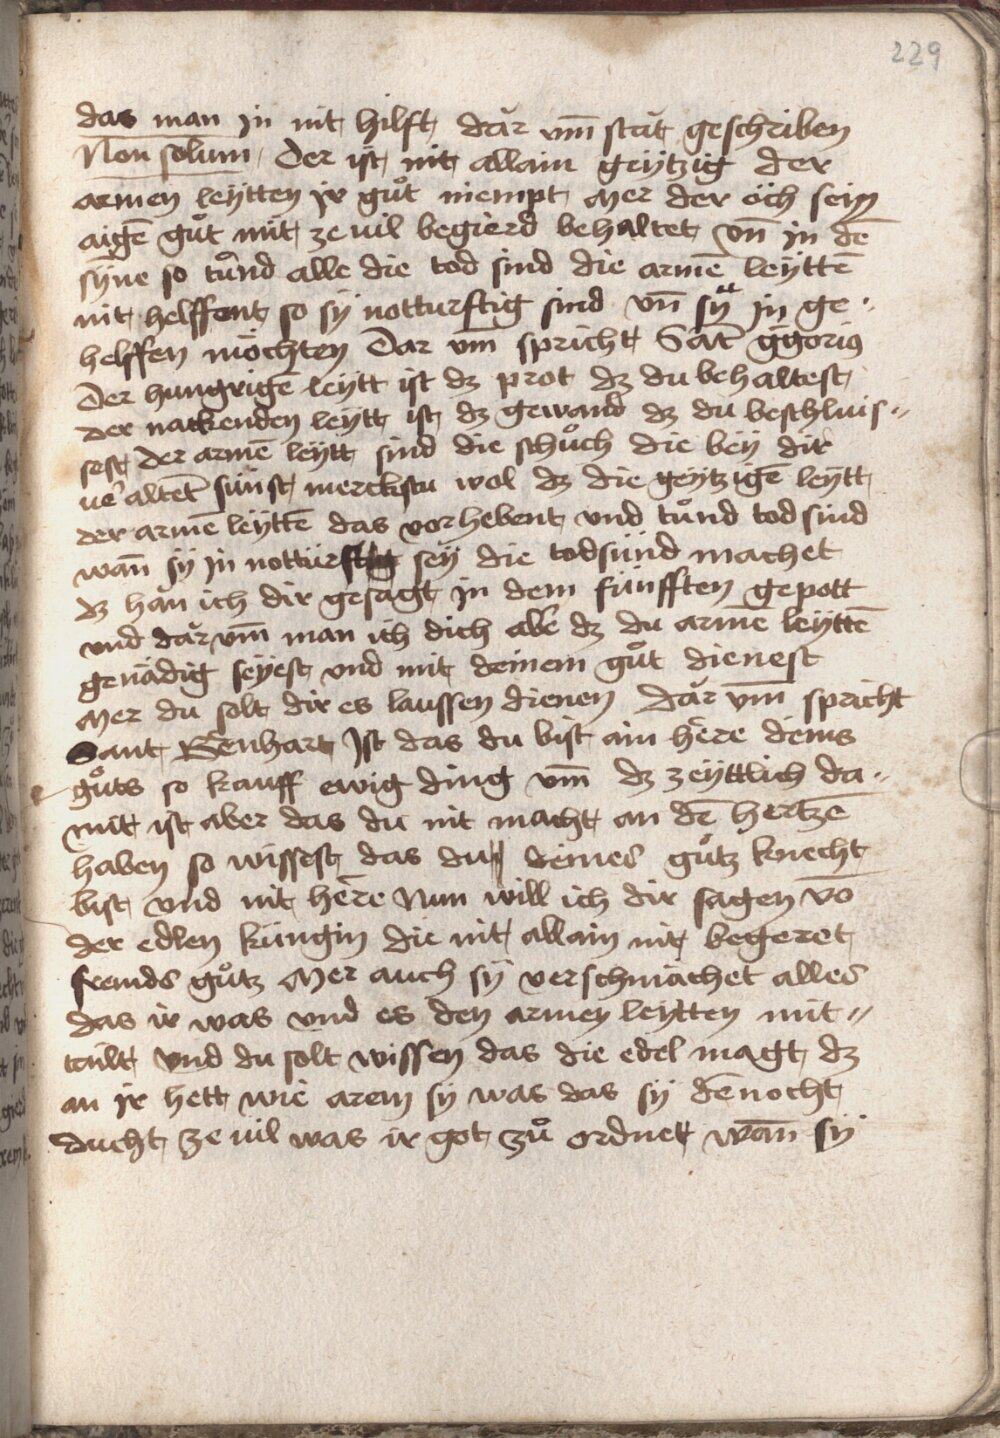 229
das man in nit hilft dăr vm̄ stăt geschriben
Non solum Der ist nit allain geytzig der
armen leytten ir gůt niempt Mer der öch sein
aigē gůt mit ze uil begierd behaltet vn̄ in dē
syne so tůnd alle die tod sind die armē leyttē
nit helffent so sÿ notturftig sind vn̄ sÿ in ge
helffen möchten Dar vm̄ spricht Sāt ggorius
Der hungrigē leytt ist dz prot dz du behaltest
der nackenden leytt ist dz gewand dz du beschluis-
sest der armē leytt sind die schůch die beÿ dir
altet sünst merckstu wol dz die geytzigē leytt
der armē leyttē das vor hebent vnd tůnd tod sind
wān sÿ in nottur seÿ die todsünd machet
dz hăn ich dir gesagt in dem fünfften gepott
vnd dăr vm̄ man ich dich abē dz du armē leyttē
genädig seÿest vnd mit deinem gůt dienest
Mer du solt dir es laussen dienen Dăr vm̄ spricht
Sant Bēnhart Ist das du bist ain hēre deins
gůts so kauff ewig ding vm̄ dz zeyttlich da-
mit ist aber das du nit macht an dē hertzē
haben so wissest das du deines gůtz knecht
bist vnd nit hēre Nun will ich dir sagen vō
der edlen küngin die nit allain nit begeret
fremds gůtz Mer auch sÿ verschmächet alles
das ir was vnd es den armen leytten mit-
tailt vnd du solt wissen das die edel magt dz
an ir hett wie arem sÿ was das sÿ dēnocht
ducht ze uil was ir got zů ordnet wān sÿ